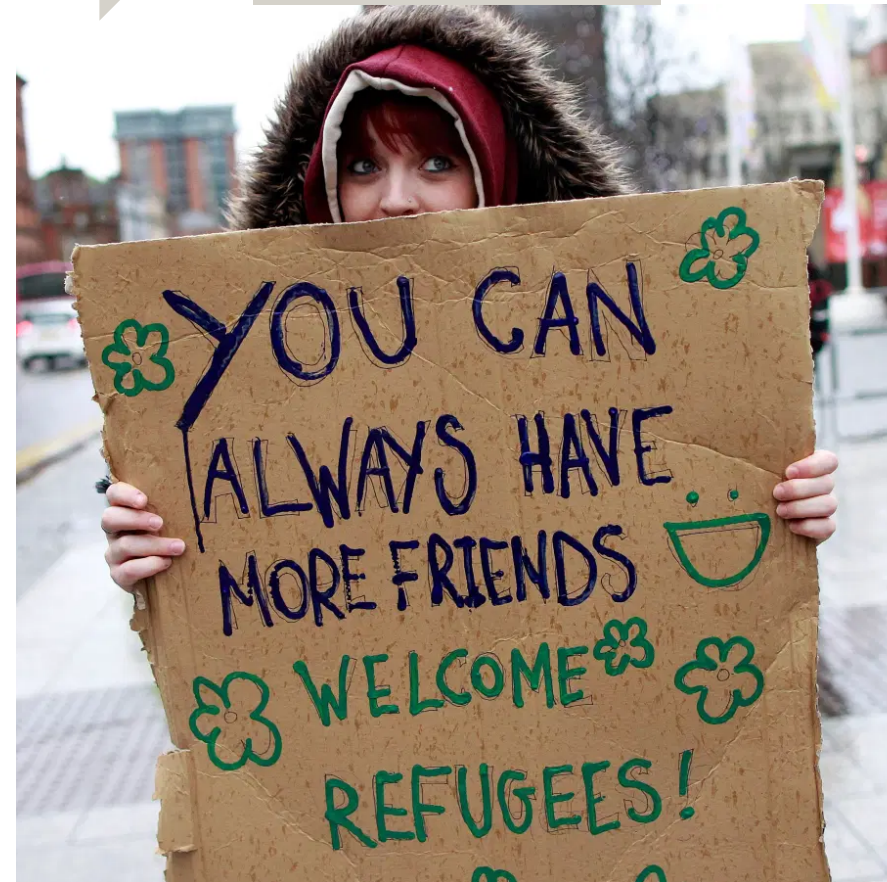 YOU CAN
ALWAYS HAVE
MORE FRIENDS
WELCOME
REFUGEES!